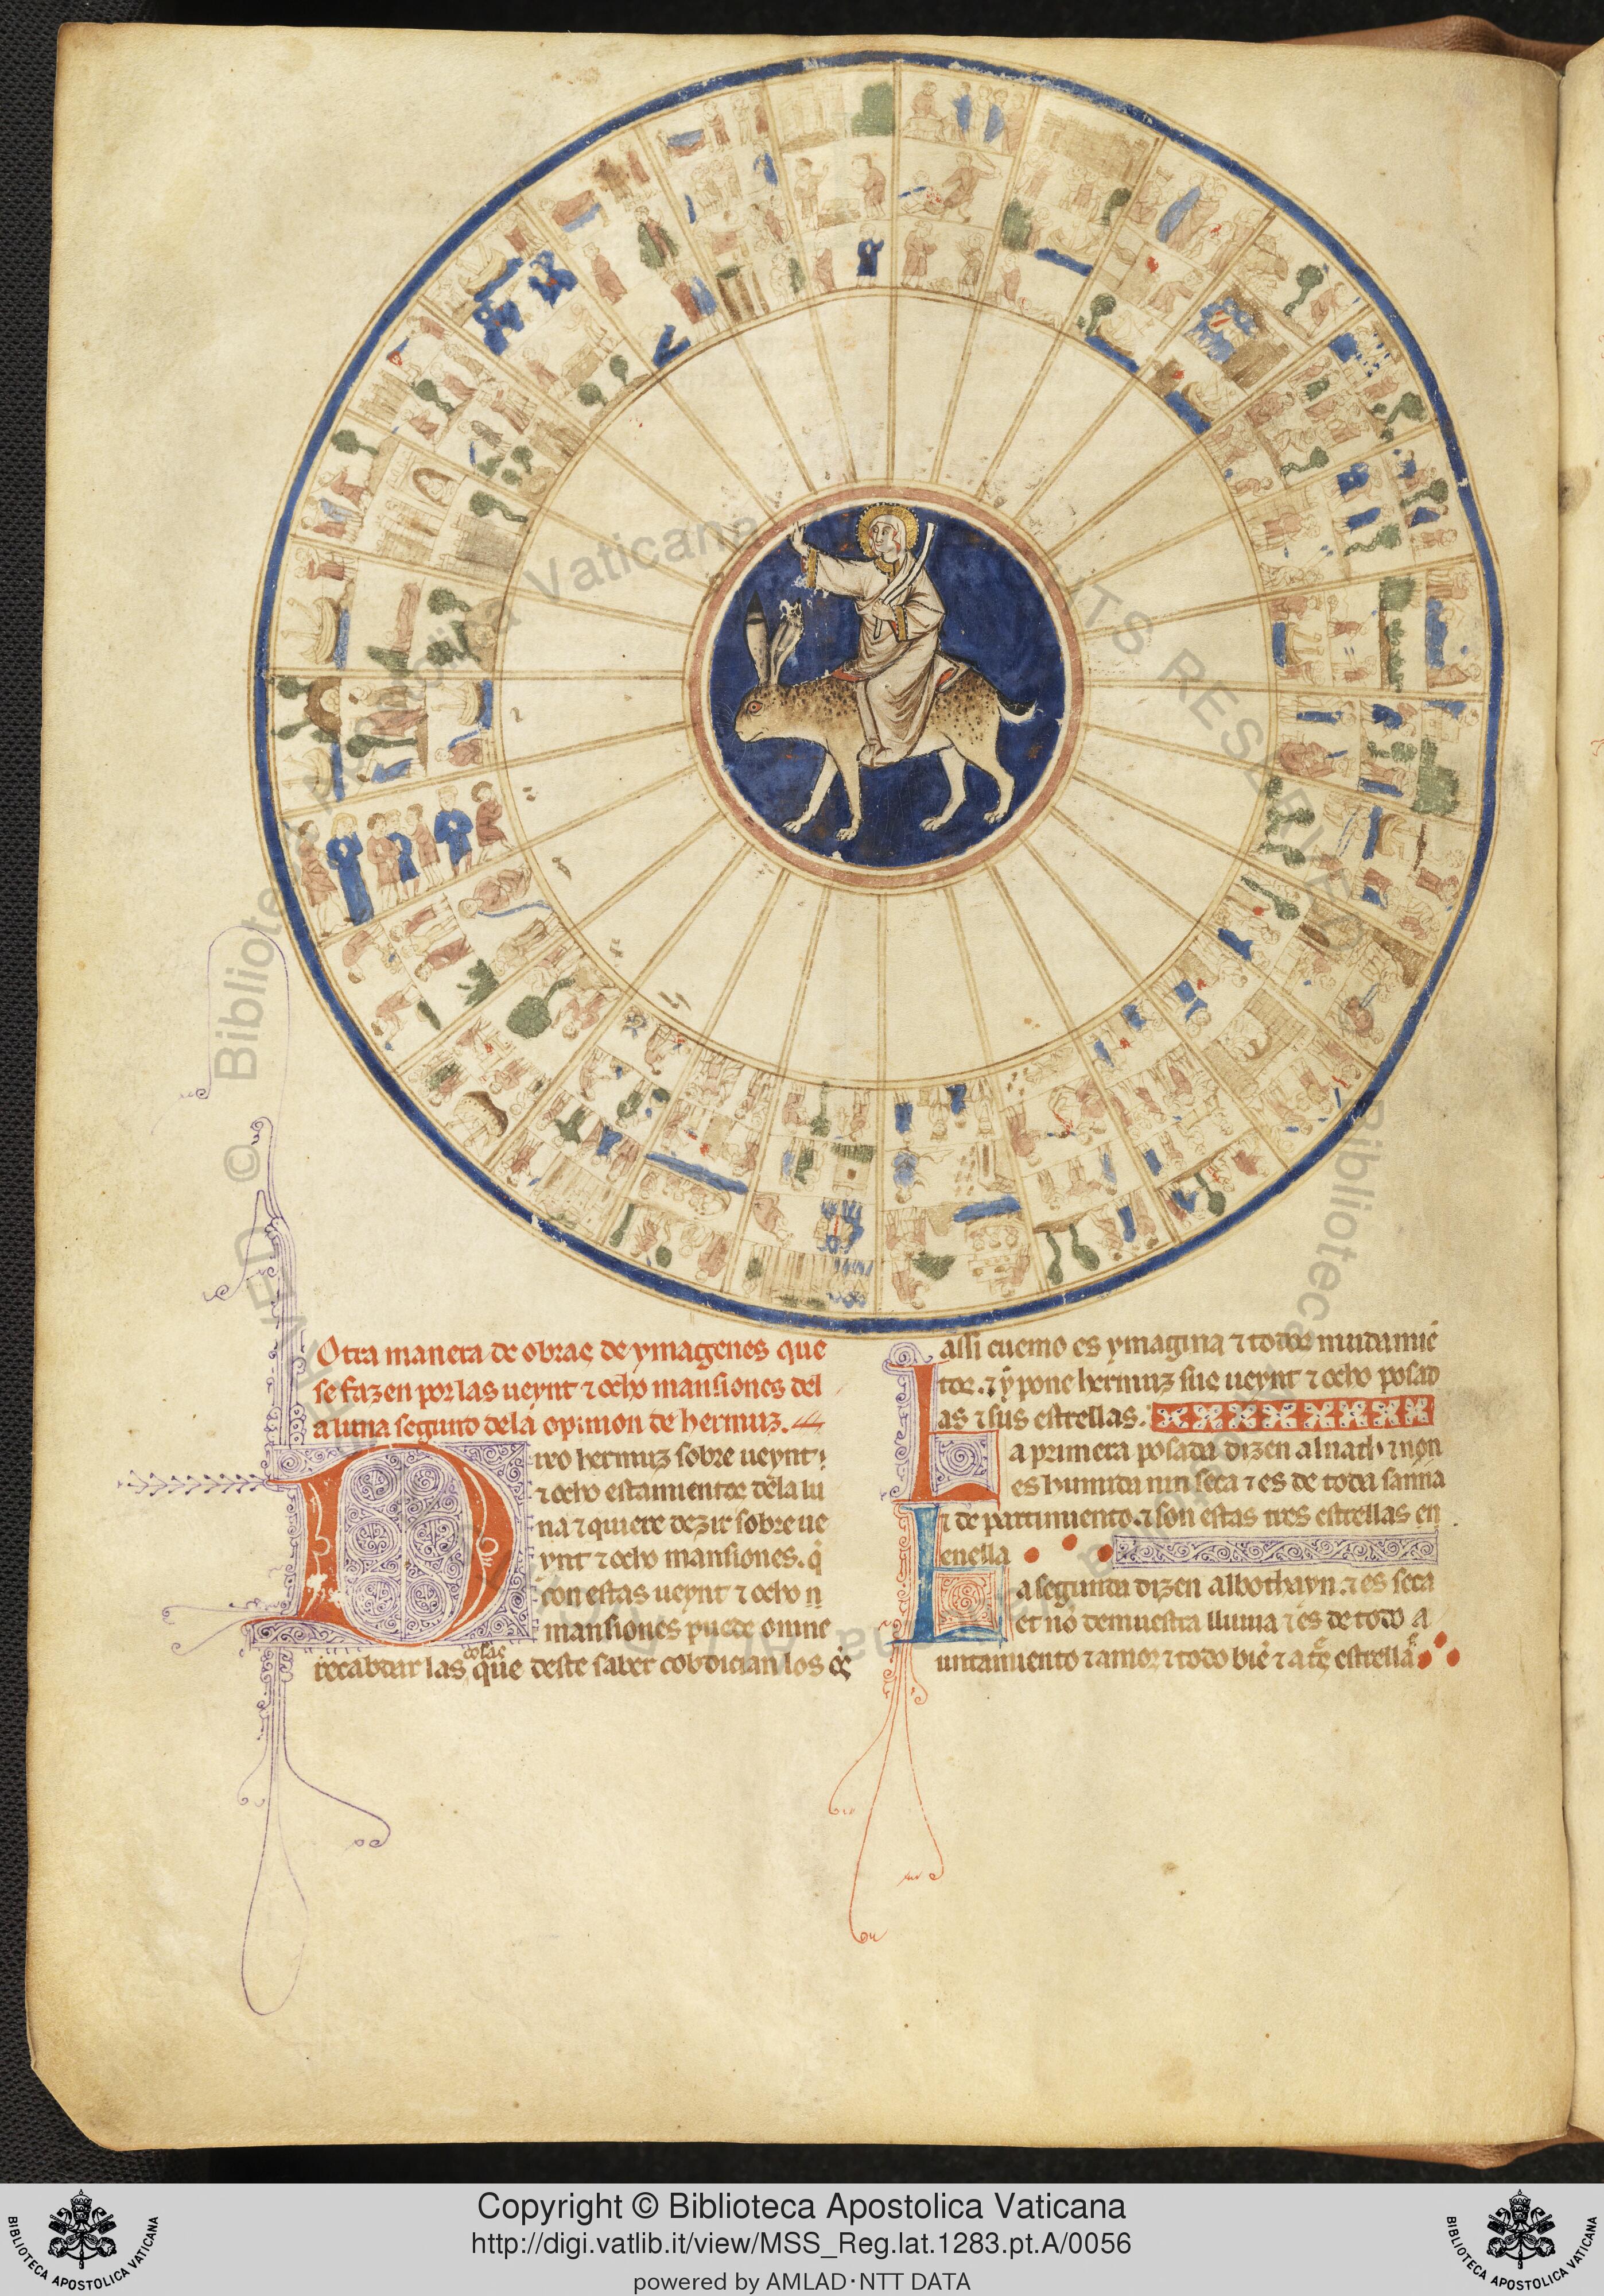 Otra manera de obras de ymagenes que
se fazen por las ueynt ⁊ ocho mansiones del
a luna segund dela opinion de hermus.
Dixo hermus sobre ueynt
⁊ ocho estamientos dela lu
na ⁊ quiere dezir sobre ue
ynt ⁊ ocho mansiones. q̇
con estas ueynt ⁊ ocho
mansiones puede omne
recabdar las cosas que deste saber cobdician los
assi cuemo es ymagina ⁊ todos mudamiē
tos. ⁊ ẏ pone hermus sus ueynt ⁊ ocho posad
as ⁊ sus estrellas.
La primera posada dizen alnath ⁊ non
es humida nin seca ⁊ es de toda sanna
⁊ de partimiento. ⁊ son estas tres estrellas en
enella
La segunda dizen albothayn. ⁊ es seca
et nō demuestra lluuia ⁊ es de todo a
untamiento ⁊ amor ⁊ todo biē ⁊ estrella
© Biblioteca Apostolica Vaticana
RIGHTS RESERVED
Copyright © Biblioteca Apostolica Vaticana
http://digi.vatlib.it/view/MSS_Reg.lat.1283.pt.A/0056
powered by AMLAD·NTT DATA
BIBLIOTECA APOSTOLICA VATICANA
BIBLIOTECA APOSTOLICA VATICANA